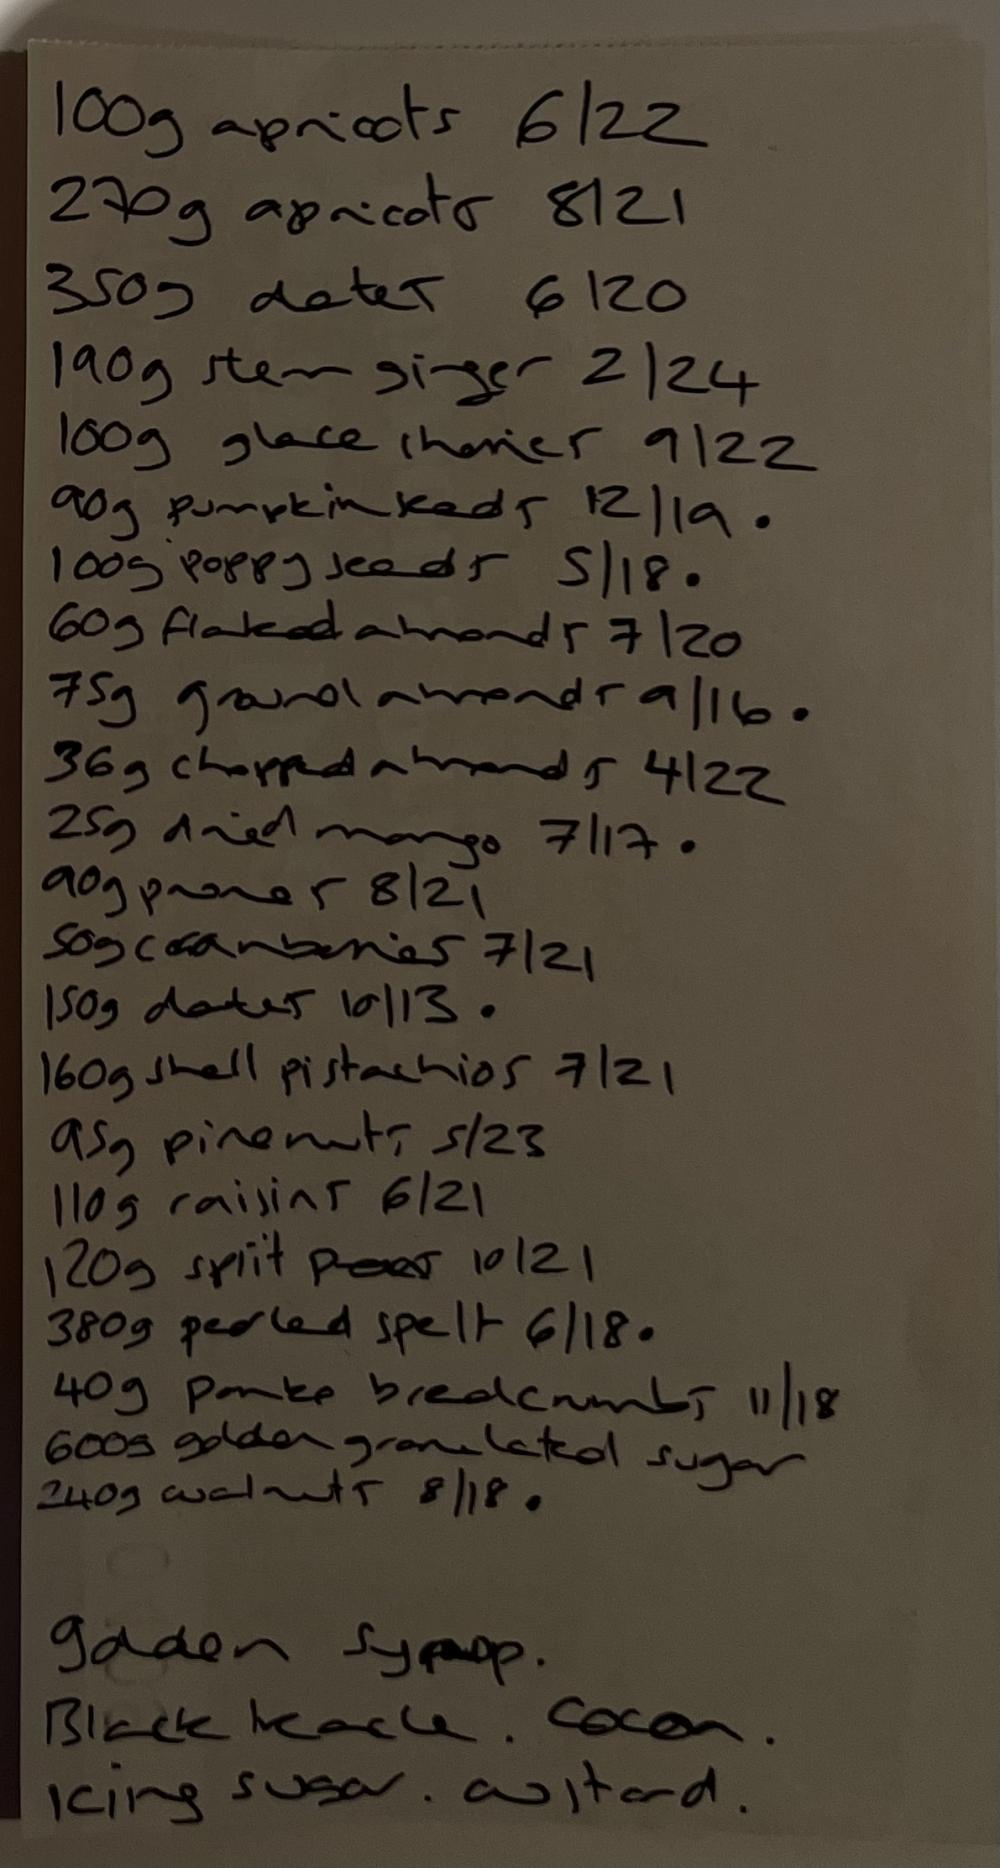 100g apricots 6/22
270g apricots 8/21
350g dates 6/20
190g stem ginger 2/24
100g glace cherries 9/22
90g pumpkin seeds 12/19.
100g poppy seeds 5/18.
60g flaked almonds 7/20
75g ground almonds 9/16.
36g chopped almonds 4/22
25g dried mango 7/17.
90g prunes 8/21
50g cranberries 7/21
150g dates 10/13.
160g shell pistachios 7/21
95g pinenuts 5/23
110g raisins 6/21
120g split peas 10/21
380g pearled spelt 6/18.
40g panko breadcrumbs 11/18
600g golden granulated sugar
240g walnuts 8/18.
golden syrup.
Black treacle. Cocoa.
Icing sugar. custard.